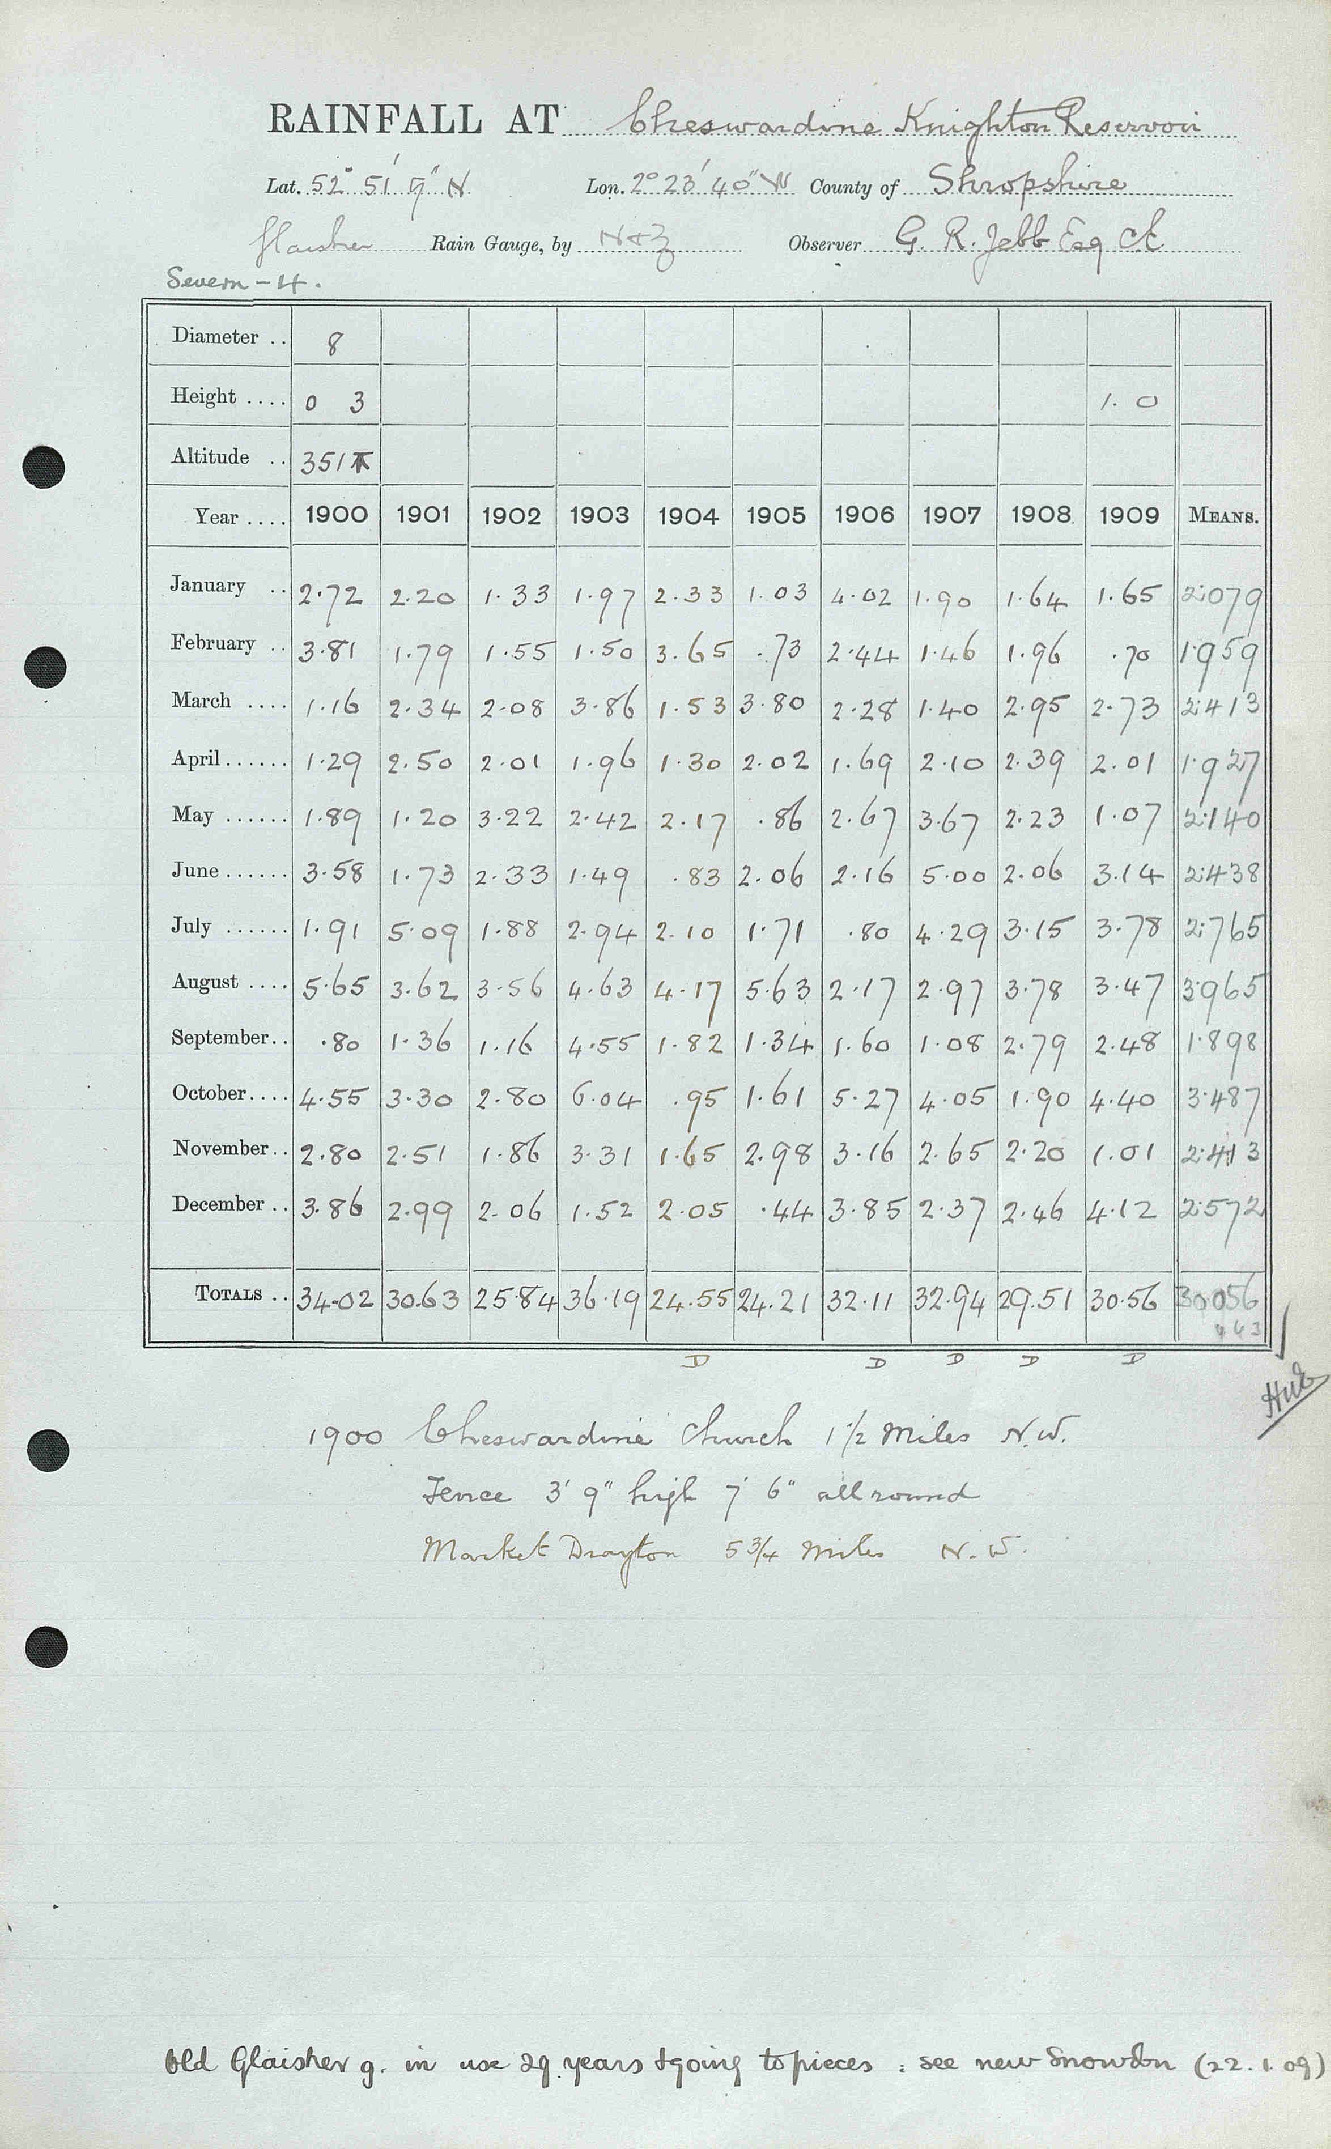 RAINFALL AT Cheswardine Knighton Reservoir
Lat. 52° 51' 9" N Lon. 2° 23' 40" W County of Shropshire
Glaisher Rain Gauge, by N & Z Observer G. R. Jebb Esq CE
Severn - 4.
Diameter .. 8
Height .... 0 3 1. 0
Altitude .. 351
Year .... 1900 1901 1902 1903 1904 1905 1906 1907 1908 1909 MEANS.
January .. 2.72 2.20 1.33 1.97 2.33 1.03 4.02 1.90 1.64 1.65 2.079
February .. 3.81 1.79 1.55 1.50 3.65 .73 2.44 1.46 1.96 .70 1.959
March .... 1.16 2.34 2.08 3.86 1.53 3.80 2.28 1.40 2.95 2.73 2.413
April ...... 1.29 2.50 2.01 1.96 1.30 2.02 1.69 2.10 2.39 2.01 1.927
May ...... 1.89 1.20 3.22 2.42 2.17 .86 2.67 3.67 2.23 1.07 2.140
June ...... 3.58 1.73 2.33 1.49 .83 2.06 2.16 5.00 2.06 3.14 2.438
July ...... 1.91 5.09 1.88 2.94 2.10 1.71 .80 4.29 3.15 3.78 2.765
August .... 5.65 3.62 3.56 4.63 4.17 5.63 2.17 2.97 3.78 3.47 3.965
September .. .80 1.36 1.16 4.55 1.82 1.34 1.60 1.08 2.79 2.48 1.898
October .... 4.55 3.30 2.80 6.04 .95 1.61 5.27 4.05 1.90 4.40 3.487
November .. 2.80 2.51 1.86 3.31 1.65 2.98 3.16 2.65 2.20 1.01 2.413
December .. 3.86 2.99 2.06 1.52 2.05 .44 3.85 2.37 2.46 4.12 2.572
TOTALS .. 34.02 30.63 25.84 36.19 24.55 24.21 32.11 32.94 29.51 30.56 30.056
443
D D D D D
1900 Cheswardine Church 1 1/2 Miles N.W.
Fence 3' 9" high 7' 6" all round
Market Drayton 5 3/4 Miles N.W.
Old Glaisher g. in use 29 years & going to pieces : see new Snowdon (22.1.09)